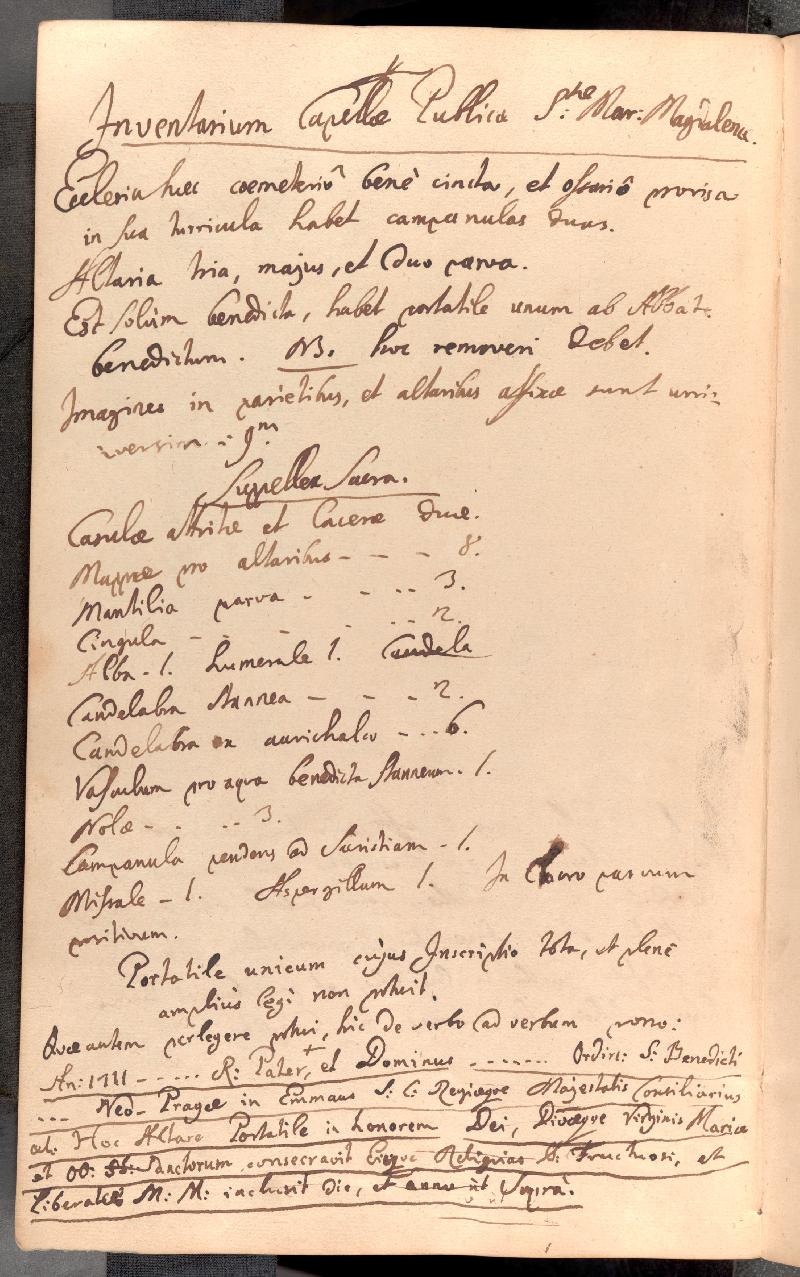 Inventarium Capellæ Publicæ S:tae Mar: Magdalenæ.
Ecclesia hæc coemeteriô benè cincta, et ossariô provisa
in sua turricula habet campanulas duas.
Altaria tria, majus, et duo parva.
Est solùm benedicta, habet portatile unum ab Abbate
benedictum. NB. hoc removeri debet.
Imagines in parietibus, et altaribus affixæ sunt uni=
versim
Suppellex Sacra.
Casulæ attritæ et laceræ duæ.
Mappæ pro altaribus - - - 8.
Mantilia parva - - - 3.
Cingula - - - 2.
Alba - 1. humerale 1. Candela
Candelabra stannea - - - 2.
Candelabra ex aurichalco - - - 6.
Vasculum pro aqua benedicta stanneum - 1.
Nolæ - - - 3.
Campanula pendens ad Sacristiam - 1.
Missale - 1. Aspergillum 1. In Choro parvum
positivum.
Portatile unicum cujus Inscriptio tota, et plenè
amplius legi non potuit.
Quæ autem perlegere potui, hic de verbo ad verbum pono:
An: 1711 - - - - - R: Pater, et Dominus - - - - - - - Ordin: S: Benedicti
... Neo-Pragæ in Emmaus S: C: Regiæque Majestatis Consiliarius
Hoc Altare Portatile in honorem Dei, Divæque Virginis Mariæ
et OO: SS: Sanctorum consecravit eique Reliquias S: Fructuosi, et
Liberatis M: M: inclusit die, et anno ut supra.